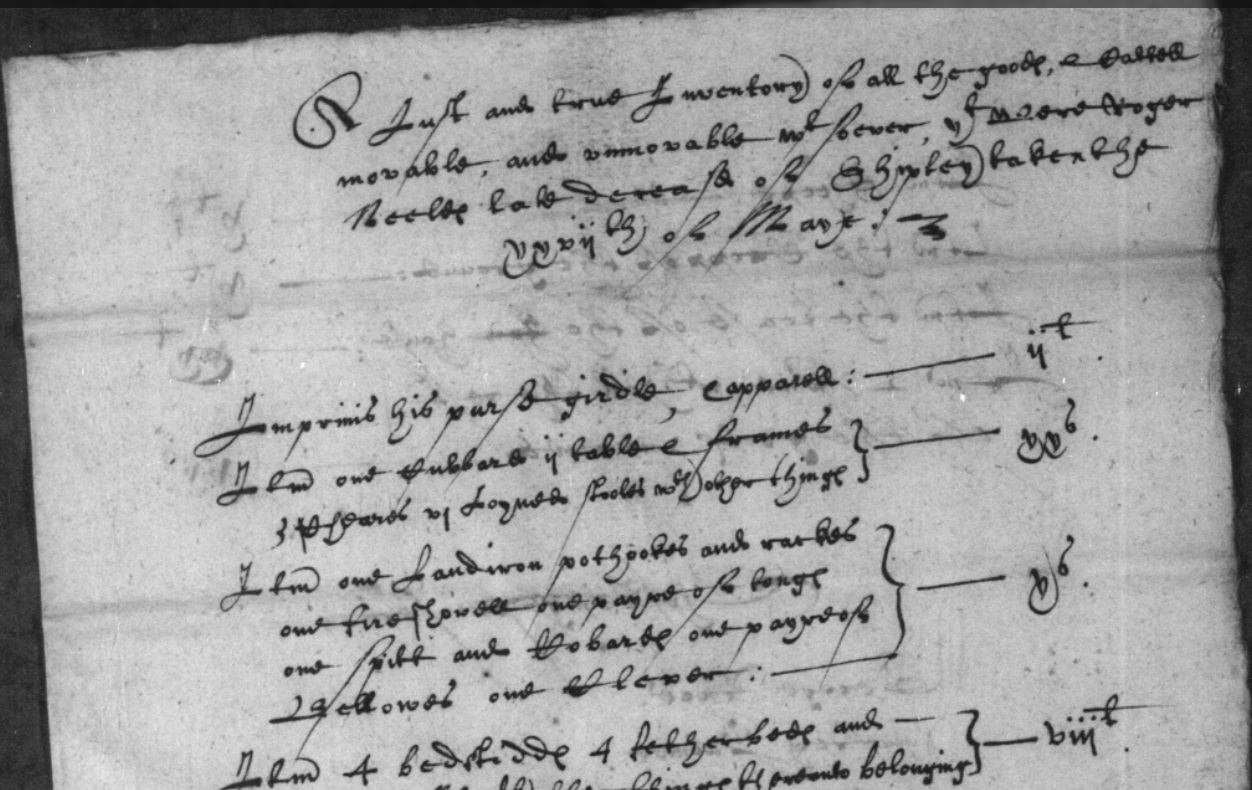 A Just and true Inventory of all the goods, & Cattell
movable, and unmovable wt soever, yt Were Roger
Neeles late decease of Shipley taken the
xxviith of Maye :
Imprimis his purse girdle, & apparell : ijl
Itm one Cubbard ij tables & frames
3 Cheares vj Joyned stooles wth other things xxs.
Itm one Landiron pothookes and rackes
one fire shovell one payre of tongs
one spitt and Cobards one payre of xs.
Bellowes one Clever :
Itm 4 bedstidds 4 fetherbeds and viiil.
things thereunto belonging